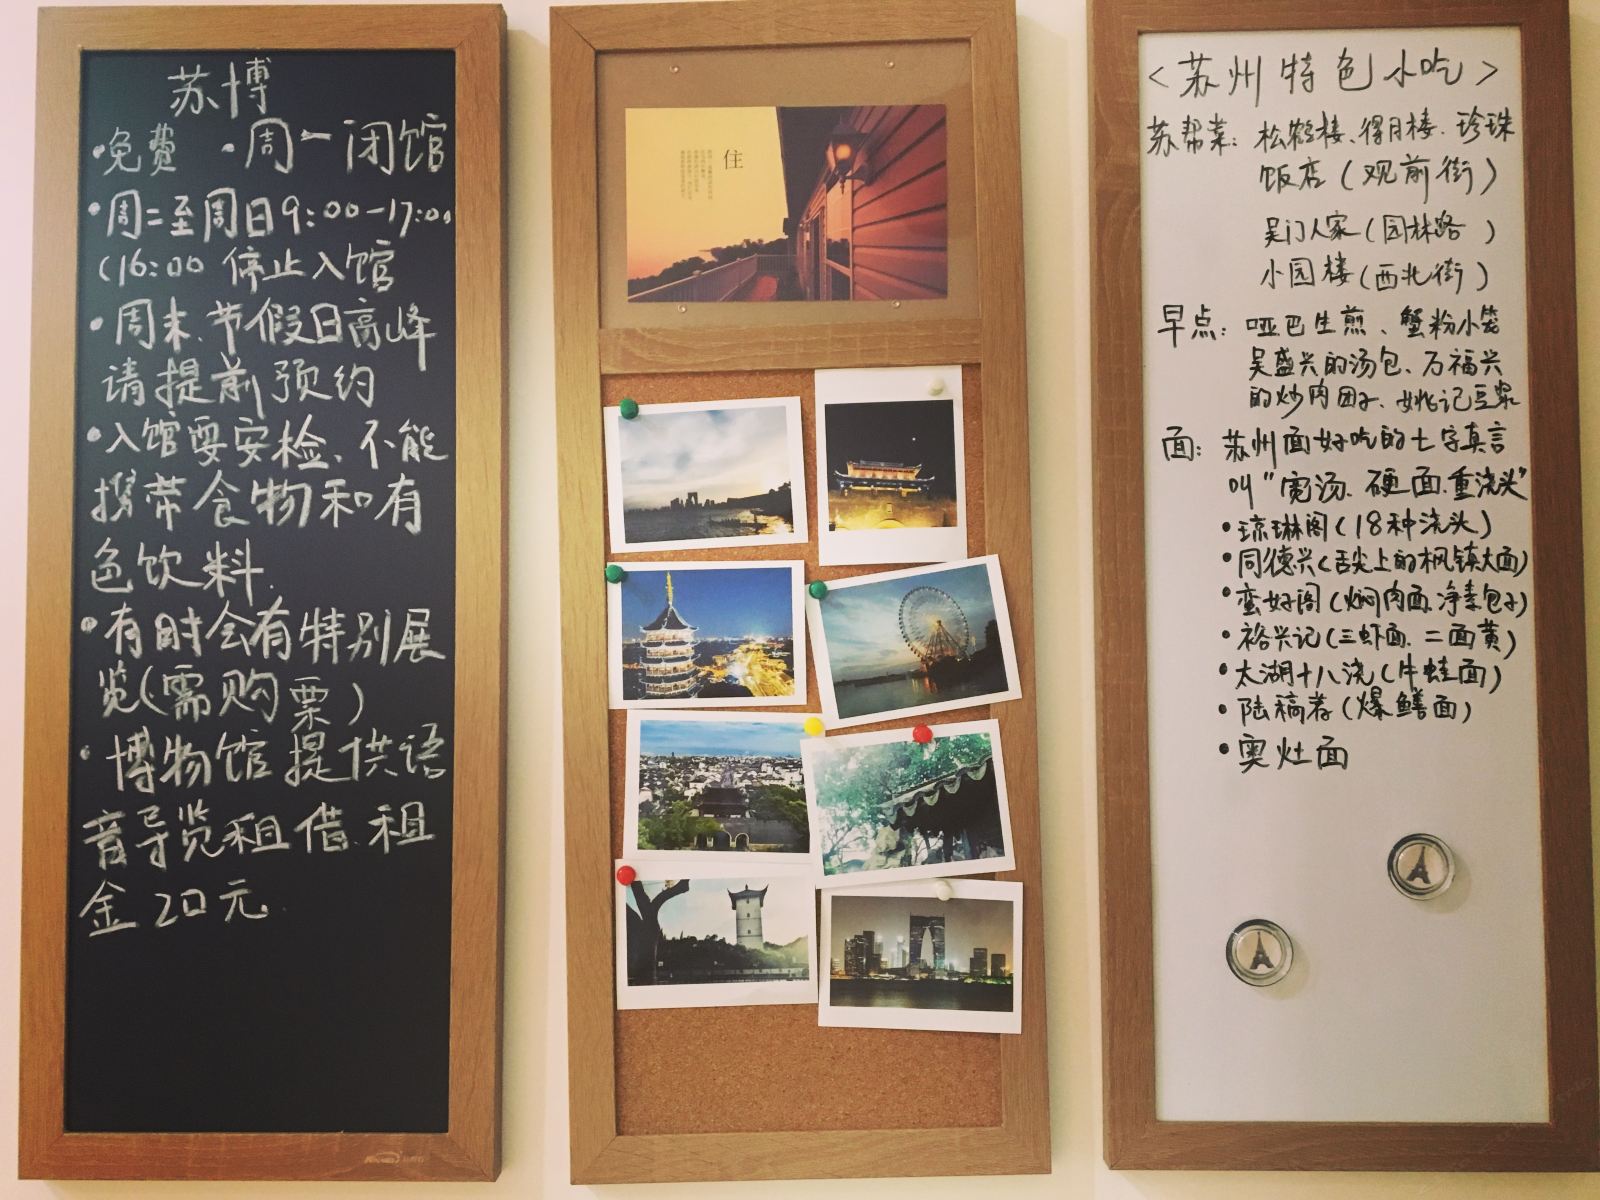 苏博
·免费 ·周一闭馆
·周二至周日9:00-17:00
(16:00 停止入馆
·周末、节假日高峰
请提前预约
·入馆要安检、不能
携带食物和有
色饮料.
·有时会有特别展
览(需购票)
·博物馆提供语
音导览租借.租
金20元.
住
<苏州特色小吃>
苏帮菜：松鹤楼、得月楼、珍珠
饭店(观前街)
吴门人家(园林路 )
小园楼(西北街)
早点：哑巴生煎、蟹粉小笼
吴盛兴的汤包、万福兴
的炒肉团子、姚记豆浆
面：苏州面好吃的七字真言
叫"宽汤、硬面、重浇头"
·琼琳阁(18种浇头)
·同德兴(舌尖上的枫镇大面)
·蛮好阁(焖肉面、净素包子)
·裕兴记(三虾面、二面黄)
·太湖十八浇(牛蛙面)
·陆稿荐(爆鳝面)
·奥灶面